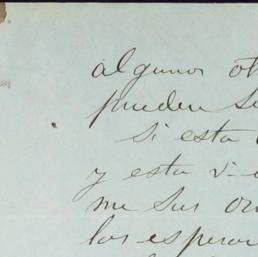 algunos ot
pueden se
si esta
y esta v
me sus or
los espero